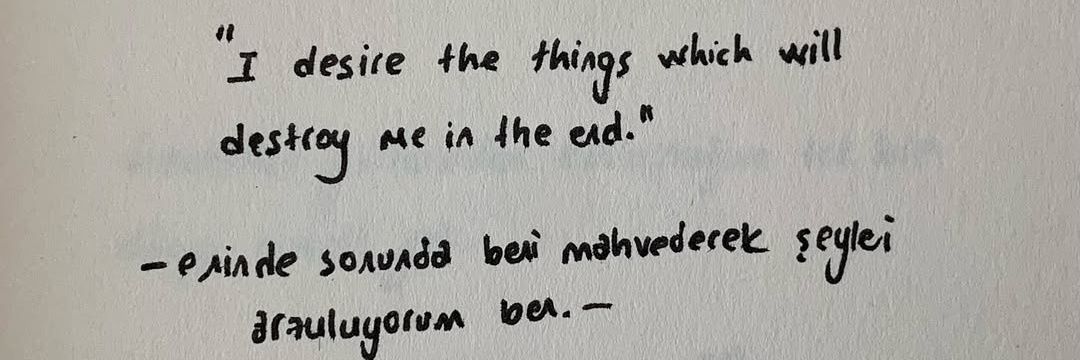 "I desire the things which will
destroy me in the end."
- eninde sonunda beni mahvedecek şeyleri
arzuluyorum ben. -